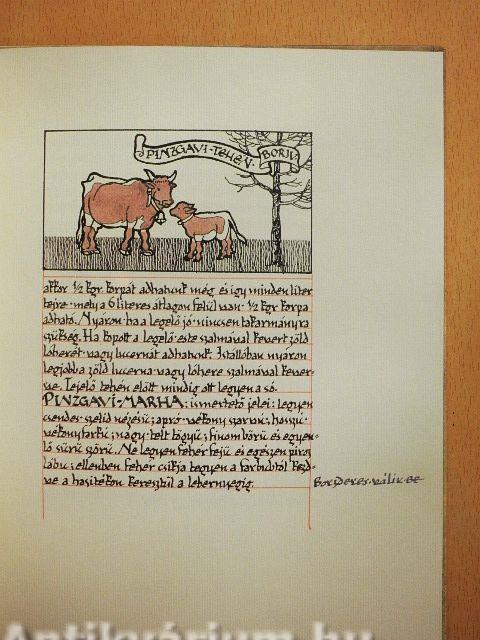 PINZGAVI·TEHÉN·BORJU
akkor ½ kgr. korpát adhatunk még és így minden liter
tejre·mely a 6 literes átlagon felül van·½ kgr korpa
adható. Nyáron·ha a legelő jó·nincsen takarmányra
szükség. Ha kopott a legelő·este szalmával kevert zöld
lóherét·vagy lucernát adhatunk. Istállóban nyáron
legjobb a zöld lucerna·vagy lóhere szalmával kever-
ve. Tejelő tehén előtt mindig ott legyen a só.
PINZGAVI-MARHA: ismertető jelei: legyen
csendes·szelid nézésű; apró·vékony szarvú; hosszú·
vékonyfarkú; nagy·telt tőgyű; finom bőrű és egyen-
lő sűrű szőrű. Ne legyen fehér fejű és egészen piros
lábú; ellenben fehér csíkja legyen a farbubtól kezd-
ve a hasítékon keresztül a lebernyegig.
Borzderes·válik·be
Antikvárium.hu